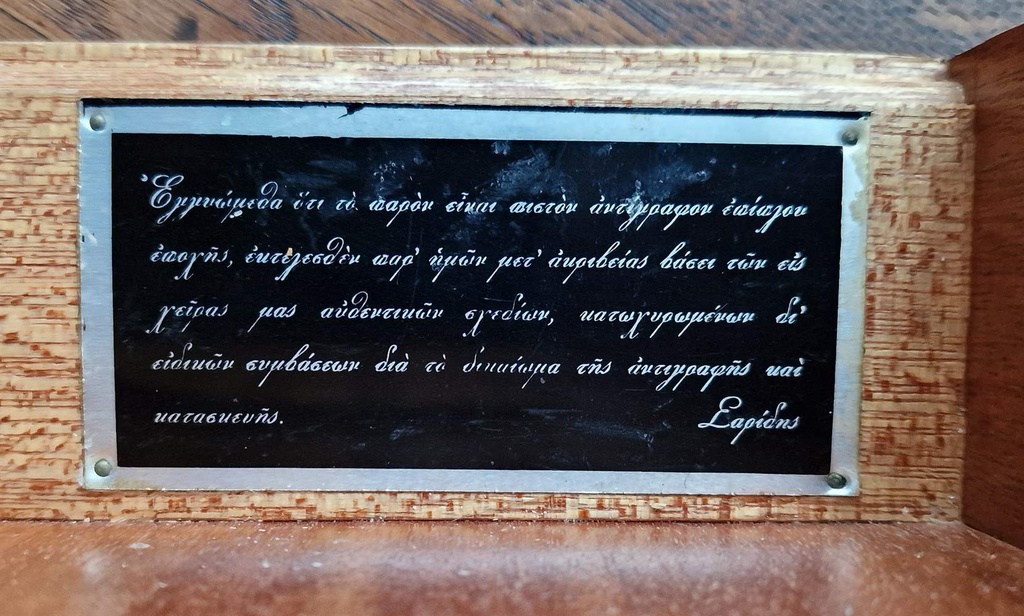 Ἐγγυώμεθα ὅτι τὸ παρὸν εἶναι πιστὸν ἀντίγραφον ἐπίπλου
ἐποχῆς, ἐκτελεσθὲν παρ' ἡμῶν μετ' ἀκριβείας βάσει τῶν εἰς
χεῖρας μας αὐθεντικῶν σχεδίων, κατωχυρωμένων δι'
εἰδικῶν συμβάσεων διὰ τὸ δικαίωμα τῆς ἀντιγραφῆς καὶ
κατασκευῆς. Σαρίδης